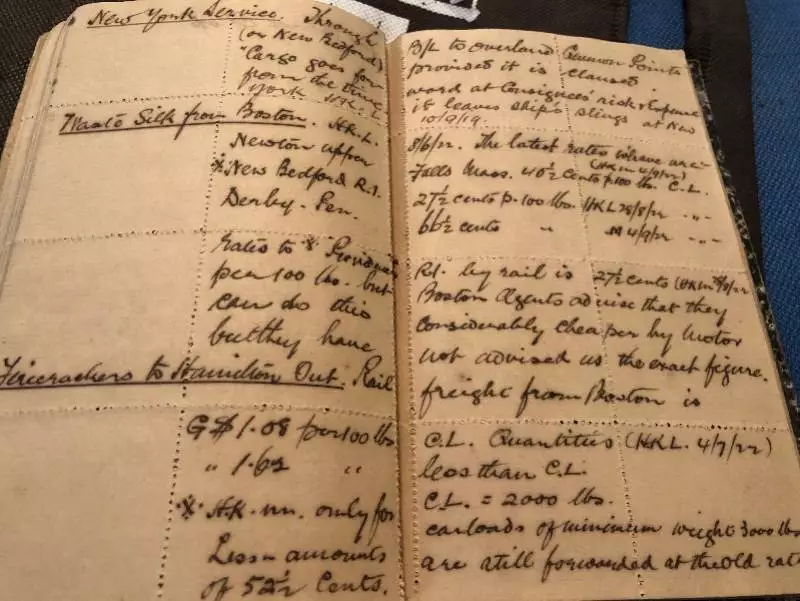 New York Service. Through
(or New Bedford)
"Cargo goes for
from the time
York. H.K.L.
Waste Silk from Boston. H.K.L.
Newton upper
※New Bedford R.I.
Derby. Pen.
rates to ※ Providence
per 100 lbs. but
can do this
but they have
Firecrackers to Hamilton Ont. Rail
G$1.08 per 100 lbs
" 1.62 "
※ H.K. only for
Less amounts
of 52½ Cents.
B/L to overland Common Points
provided it is claused
ward at Consignee's risk & Expense
it leaves ship's slings at New
10/9/19.
8/6/22. The latest rates we have are
(HKm 4/9/22)
Falls Mass. 40½ cents p 100 lbs. C.L.
27½ cents p. 100 lbs. HKL 28/8/22 " "
66½ cents " 4/9/22 " "
R.I. by rail is 27½ cents
Boston Agents advise that they
considerably cheaper by Motor
not advised us the exact figure.
freight from Boston is
C.L. Quantities (HKL. 4/7/22)
less than C.L.
C.L. = 2000 lbs.
carloads of minimum weight 3000 lbs
are still forwarded at the old rate